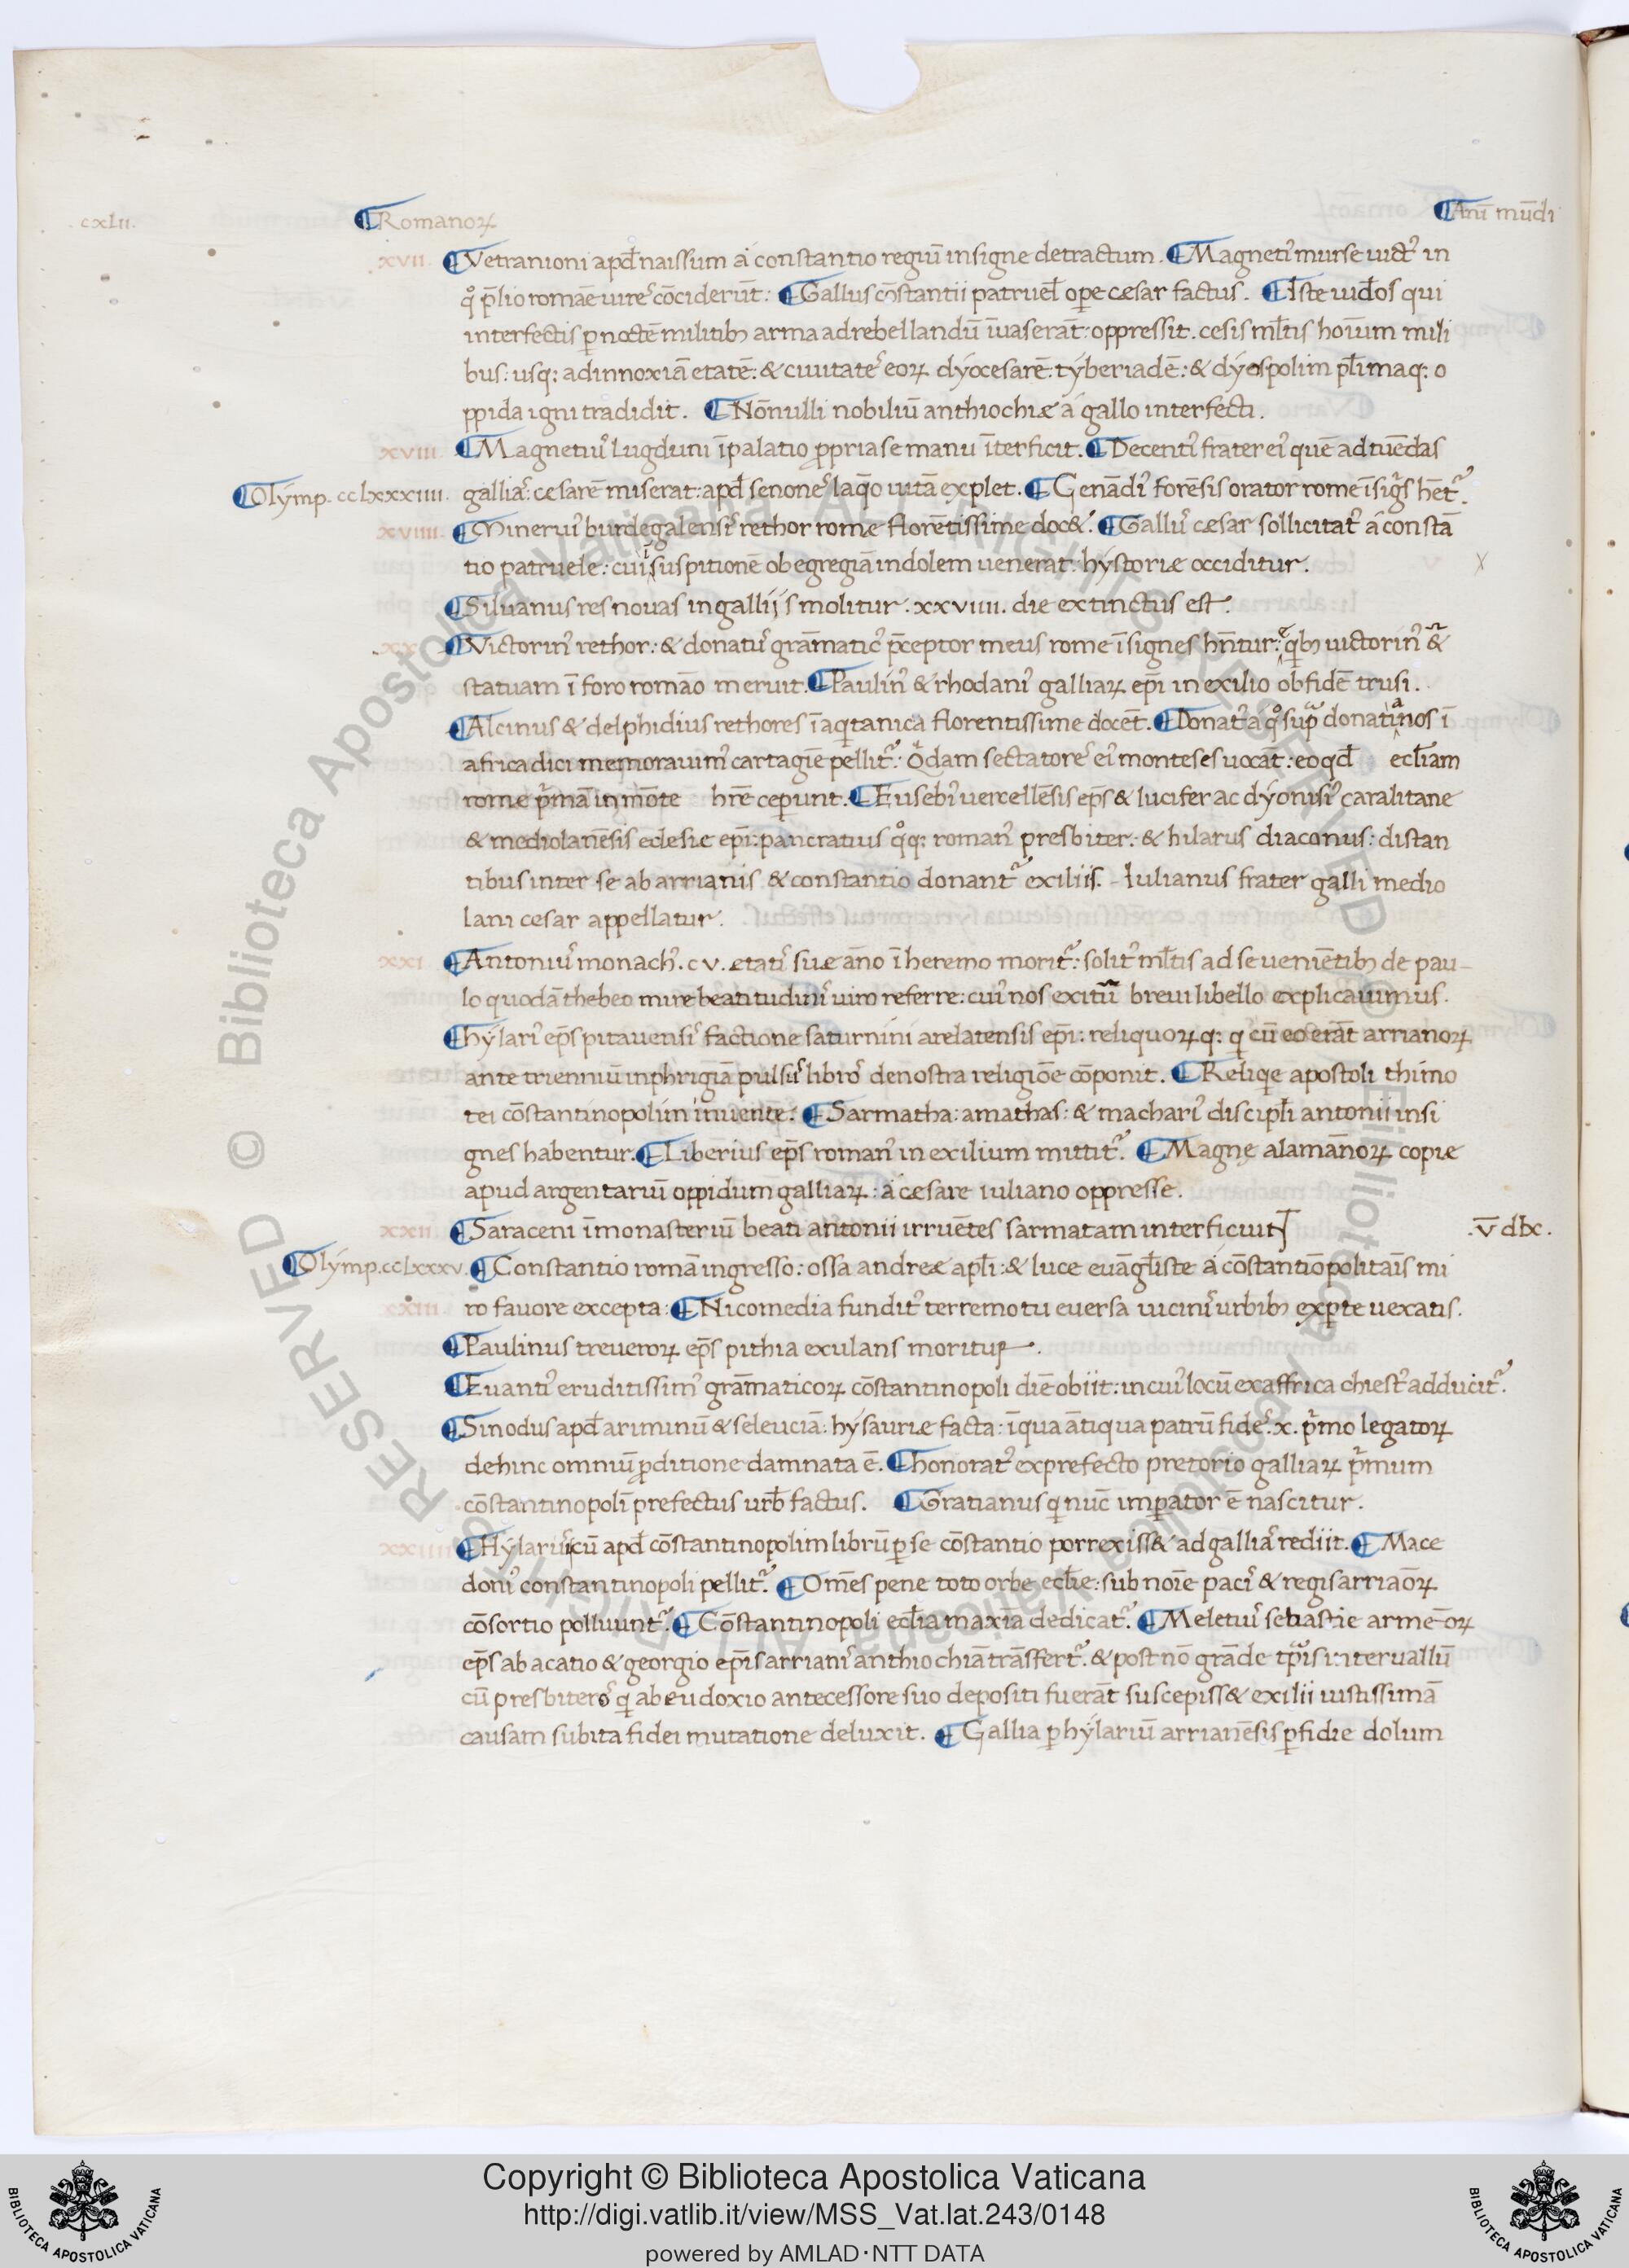 cxlii.
¶Romanoꝝ
¶Anī mūdi
xvii. ¶Vetranioni apđ naissum a constantio regiū insigne detractum. ¶Magnetiꝰ murse uictꝰ in
qͦ p̄lio romāe uires cōciderūt: ¶Gallus cōstantii patruel̄ ope cæsar factus. ¶Iste iud̄os qui
interfectis p noctē militibꝫ arma ad rebellandū īuaserāt: oppressit. cesis ml̄tis hoīum mili
bus: usqꝫ ad innoxiā etatē: & ciuitates eoꝝ dyocesarē: tyberiadē: & dyospolim pl̄imaqꝫ o
ppida igni tradidit. ¶Nōnulli nobiliū anthiochiæ a gallo interfecti.
xviii ¶Magnetiuˢ lugduni ī palatio ꝓpria se manu īterficit. ¶Decentiꝰ frater eiꝰ quē ad tuēdas
¶Olymp. cclxxxiiii. galliaˢ: cesarē miserat: apđ senoneˢ laq̄o uitā explet. ¶Genādiꝰ forēsis orator rome īsigͥs hēt᷑.
xviiii ¶Mineruiꝰ burdegalensiˢ rethor rome florētissime doc&. ¶Galluˢ cæsar sollicitatꝰ a constā
tio patruele: cui ī suspitionē ob egregiā indolem uenerat: hystoriæ occiditur.
¶Siluanus res nouas in galliis molitur. xxviiii. die extinctus est.
xx ¶Victorinꝰ rethor: & donatuˢ grāmaticꝰ p̄ceptor meus rome īsignes hn̄tur: e qͥbꝫ uictorinꝰ &
statuam ī foro romāo meruit. ¶Paulinꝰ & rhodaniꝰ galliaꝝ ep̄i in exilio ob fidē trusi.
¶Alcinus & delphidius rethores ī aqͥtanica florentissime docēt. ¶Donatꝰ a qͦ sup̄ donatianos ī
africa dici memorauimꝰ cartagīe pellit᷑: Qͥdam sectatoreˢ eiꝰ monteses uocāt: eo qđ ecl̄iam
rome pͥmā in mōte hr̄e ceperunt. ¶Eusebiꝰ uercellēsis ep̄s & lucifer ac dyonisiꝰ caralitane
& mediolanēsis eclesie ep̄i: pancratius qͦqꝫ romanꝰ presbiter: & hilarus diaconus: distan
tibus inter se ab arrianis & constantio donant᷑ exiliis. Iulianus frater galli medio
lani cesar appellatur.
xxi ¶Antoniuˢ monachꝰ. cv. etatiˢ suæ āno ī heremo morit᷑: solitꝰ ml̄tis ad se ueniētibꝫ de pau-
lo quodā thebeo mire beatitudiniˢ uiro referre: cuiꝰ nos exitū breui libello explicauimus.
¶hylariꝰ ep̄s pitauensiˢ factione saturnini arelatensis ep̄i: reliquoꝝqꝫ qͥ cū eo erāt arrianoꝝ
ante trienniū in phrigiā pulsuˢ libroˢ de nostra religiōe cōponit. ¶Reliqͥe apostoli thimo
tei cōstantinopolim inuente: ¶Sarmatha: amathas: & machariꝰ discipl̄i antonii insi
gnes habentur. ¶Liberius ep̄s romanꝰ in exilium mittit᷑. ¶Magne alamānoꝝ copiæ
apud argentariū oppidum galliaꝝ: a cesare iuliano oppresse.
xxii ¶Saraceni ī monasteriū beati antonii irruētes sarmatam interficiūt .v̄ dlxc.
¶Olymp. cclxxxv. ¶Constantio romā ingresso: ossa andreæ apl̄i: & luce euāgl̄iste a cōstantiōpolitaīs mi
xxiii ro fauore excepta: ¶Nicomedia funditꝰ terremotu euersa uiciniˢ urbibꝫ ex pte uexatis.
¶Paulinus treueroꝝ ep̄s pithia exulans moritur.
¶Euantiꝰ eruditissimꝰ grāmaticoꝝ cōstantinopoli diē obiit: in cuiꝰ locū ex affrica chiestꝰ adducit᷑.
¶Sinodus apđ ariminū & seleuciā: hysauriæ facta: ī qua ātiqua patrū fideˢ. x. pͥmo legatoꝝ
dehinc omniū ꝓditione damnata ē. ¶honoratꝰ ex prefecto pretorio galliaꝝ pͥmum
cōstantinopoli prefectus urb̄ factus. ¶Gratianus qͥ nūc imꝑator ē nascitur.
xxiiii ¶Hylariuˢ cū apđ cōstantinopolim librū ꝑ se cōstantio porrexiss& ad galliaˢ rediit. ¶Mace
doniꝰ constantinopoli pellit᷑. ¶Om̄es pene toto orbe ecl̄ie: sub noīe paciˢ & regis arriaōꝝ
cōsortio polluunt᷑. ¶Cōstantinopoli ecl̄ia maxīa dedicat᷑. ¶Meletiuˢ sebastie armēoꝝ
ep̄s ab acatio & georgio ep̄is arrianiˢ anthiochiā trāsfert᷑. & post nō grāde tp̄is interuallū
cū presbiteroˢ qͥ ab eudoxio antecessore suo depositi fuerāt suscepiss& exilii iustissimā
causam subita fidei mutatione deluxit. ¶Gallia ꝑ hylariū arrianēsis ꝑfidie dolum
Copyright © Biblioteca Apostolica Vaticana
http://digi.vatlib.it/view/MSS_Vat.lat.243/0148
powered by AMLAD·NTT DATA